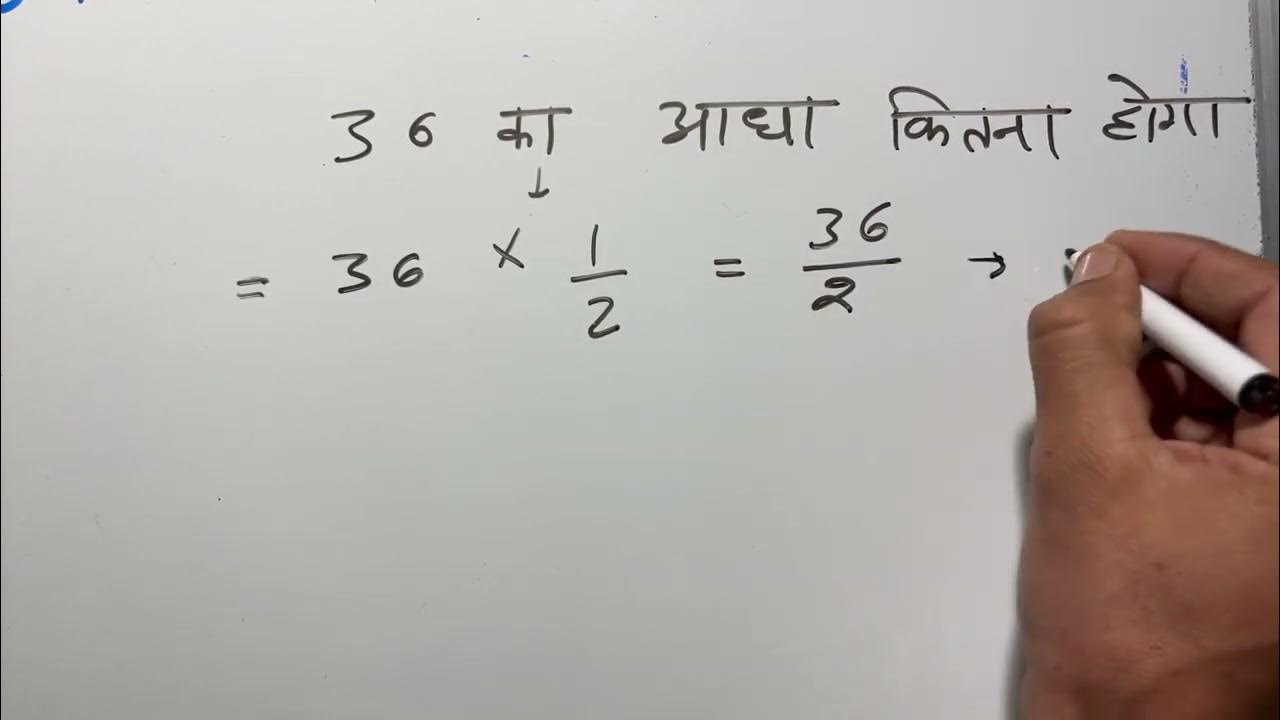 36 का आधा कितना होगा
↓
= 36 × 1/2 = 36/2 →